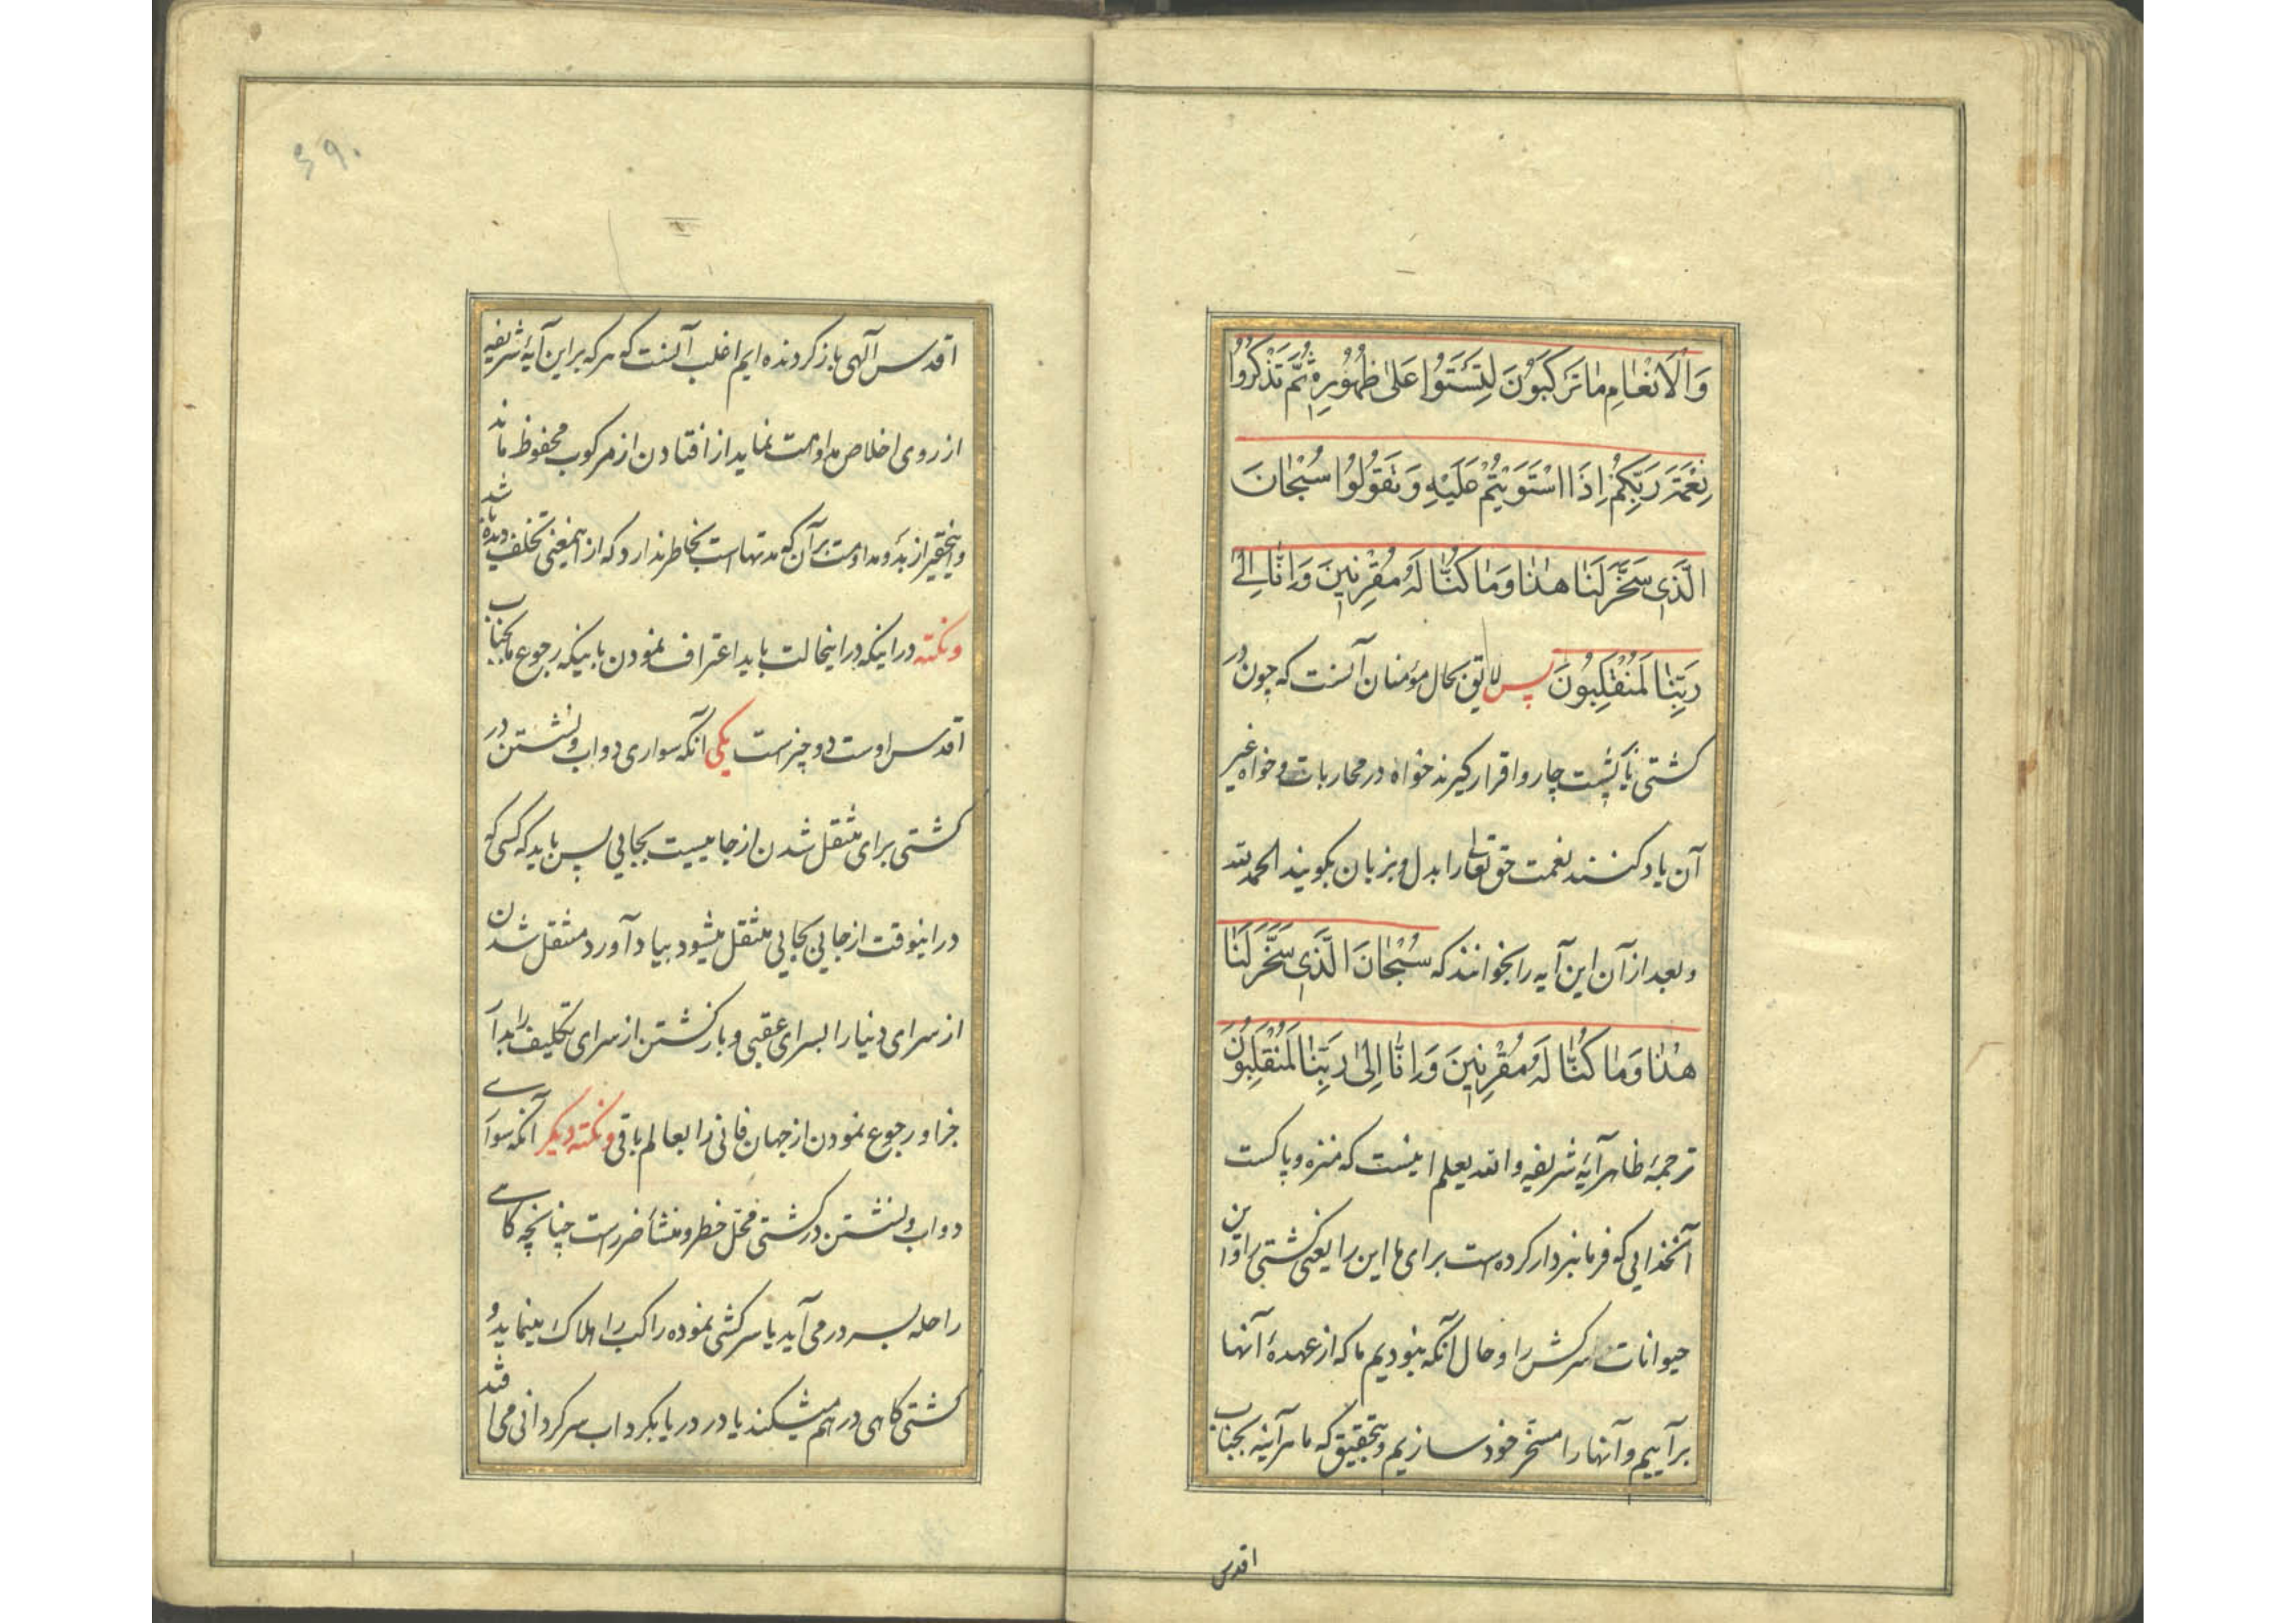 وَالْاَنْعٰامِ مٰا تَرْكَبُونَ لِتَسْتَوُا عَلىٰ ظُهُورِهِ ثُمَّ تَذْكُرُوا
نِعْمَةَ رَبِّكُمْ اِذَا اسْتَوَيْتُمْ عَلَيْهِ وَتَقُولُوا سُبْحٰانَ
الَّذِى سَخَّرَ لَنٰا هٰذٰا وَمٰا كُنّٰا لَهُ مُقْرِنِينَ وَاِنّٰا اِلىٰ
رَبِّنٰا لَمُنْقَلِبُونَ پس لایق بحال مؤمنان آنست که چون در
کشتی یا پشت چاروا قرار کیرند خواه در محاربات و خواه غیر
آن یاد کنند نعمت حق تعالی را بدل و بزبان بکویند الحمد لله
و بعد از آن این آیه را بخوانند که سُبْحٰانَ الَّذِى سَخَّرَ لَنٰا
هٰذٰا وَمٰا كُنّٰا لَهُ مُقْرِنِينَ وَاِنّٰا اِلىٰ رَبِّنٰا لَمُنْقَلِبُونَ
ترجمهٔ ظاهر آیهٔ شریفه والله یعلم اینست که منزه و پاکست
آنخدایی که فرمانبردار کرده است برای ما این را یعنی کشتی را و این
حیوانات سرکش را و حال آنکه نبودیم ما که از عهدهٔ آنها
برآییم و آنها را مسخّر خود سازیم و بتحقیق که ما هرآینه بجناب
اقدس
۶۹۰
اقدس آلهی بازکردنده ایم اغلب آنست که هرکه بر این آیهٔ شریفه
از روی اخلاص مداومت نماید از افتادن از مرکوب محفوظ ماند
و اینحقیر از بدو مداومت بر آن که مدتهاست بخاطر ندارد که از اینمعنی تخلف دیده باشد
و نکته در اینکه در اینحالت باید اعتراف نمودن باینکه رجوع ما بجناب
اقدس اوست دو چیزست یکی آنکه سواری دواب و نشستن در
کشتی برای منتقل شدن از جاییست بجایی پس باید که کسی که
در اینوقت از جایی بجایی منتقل میشود بیاد آورد منتقل شدن
از سرای دنیا را بسرای عقبی و بازکشتن از سرای تکلیف را بدار
جزا و رجوع نمودن از جهان فانی را بعالم باقی و نکته دیکر آنکه سواری
دواب و نشستن در کشتی محل خطر و منشأ ضررست چنانچه کاهی
راحله بسر در می آید یا سرکشی نموده راکب را هلاک مینماید و
کشتی کاهی در هم میشکند یا در دریا بکرداب سرکردانی می افتد